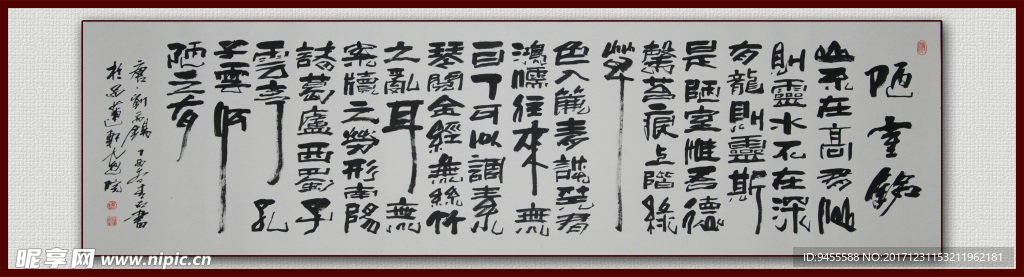 陋室銘
山不在高有仙
則靈水不在深
有龍則靈斯
是陋室惟吾德
馨苔痕上階綠
草
色入簾青談笑有
鴻儒往來無
白丁可以調素
琴閱金經無絲竹
之亂耳無
案牘之勞形南陽
諸葛廬西蜀子
雲亭孔
子雲何
陋之有
唐·劉禹錫丁酉書
昵享网 www.nipic.cn
ID:9455588 NO:20171231153211962181